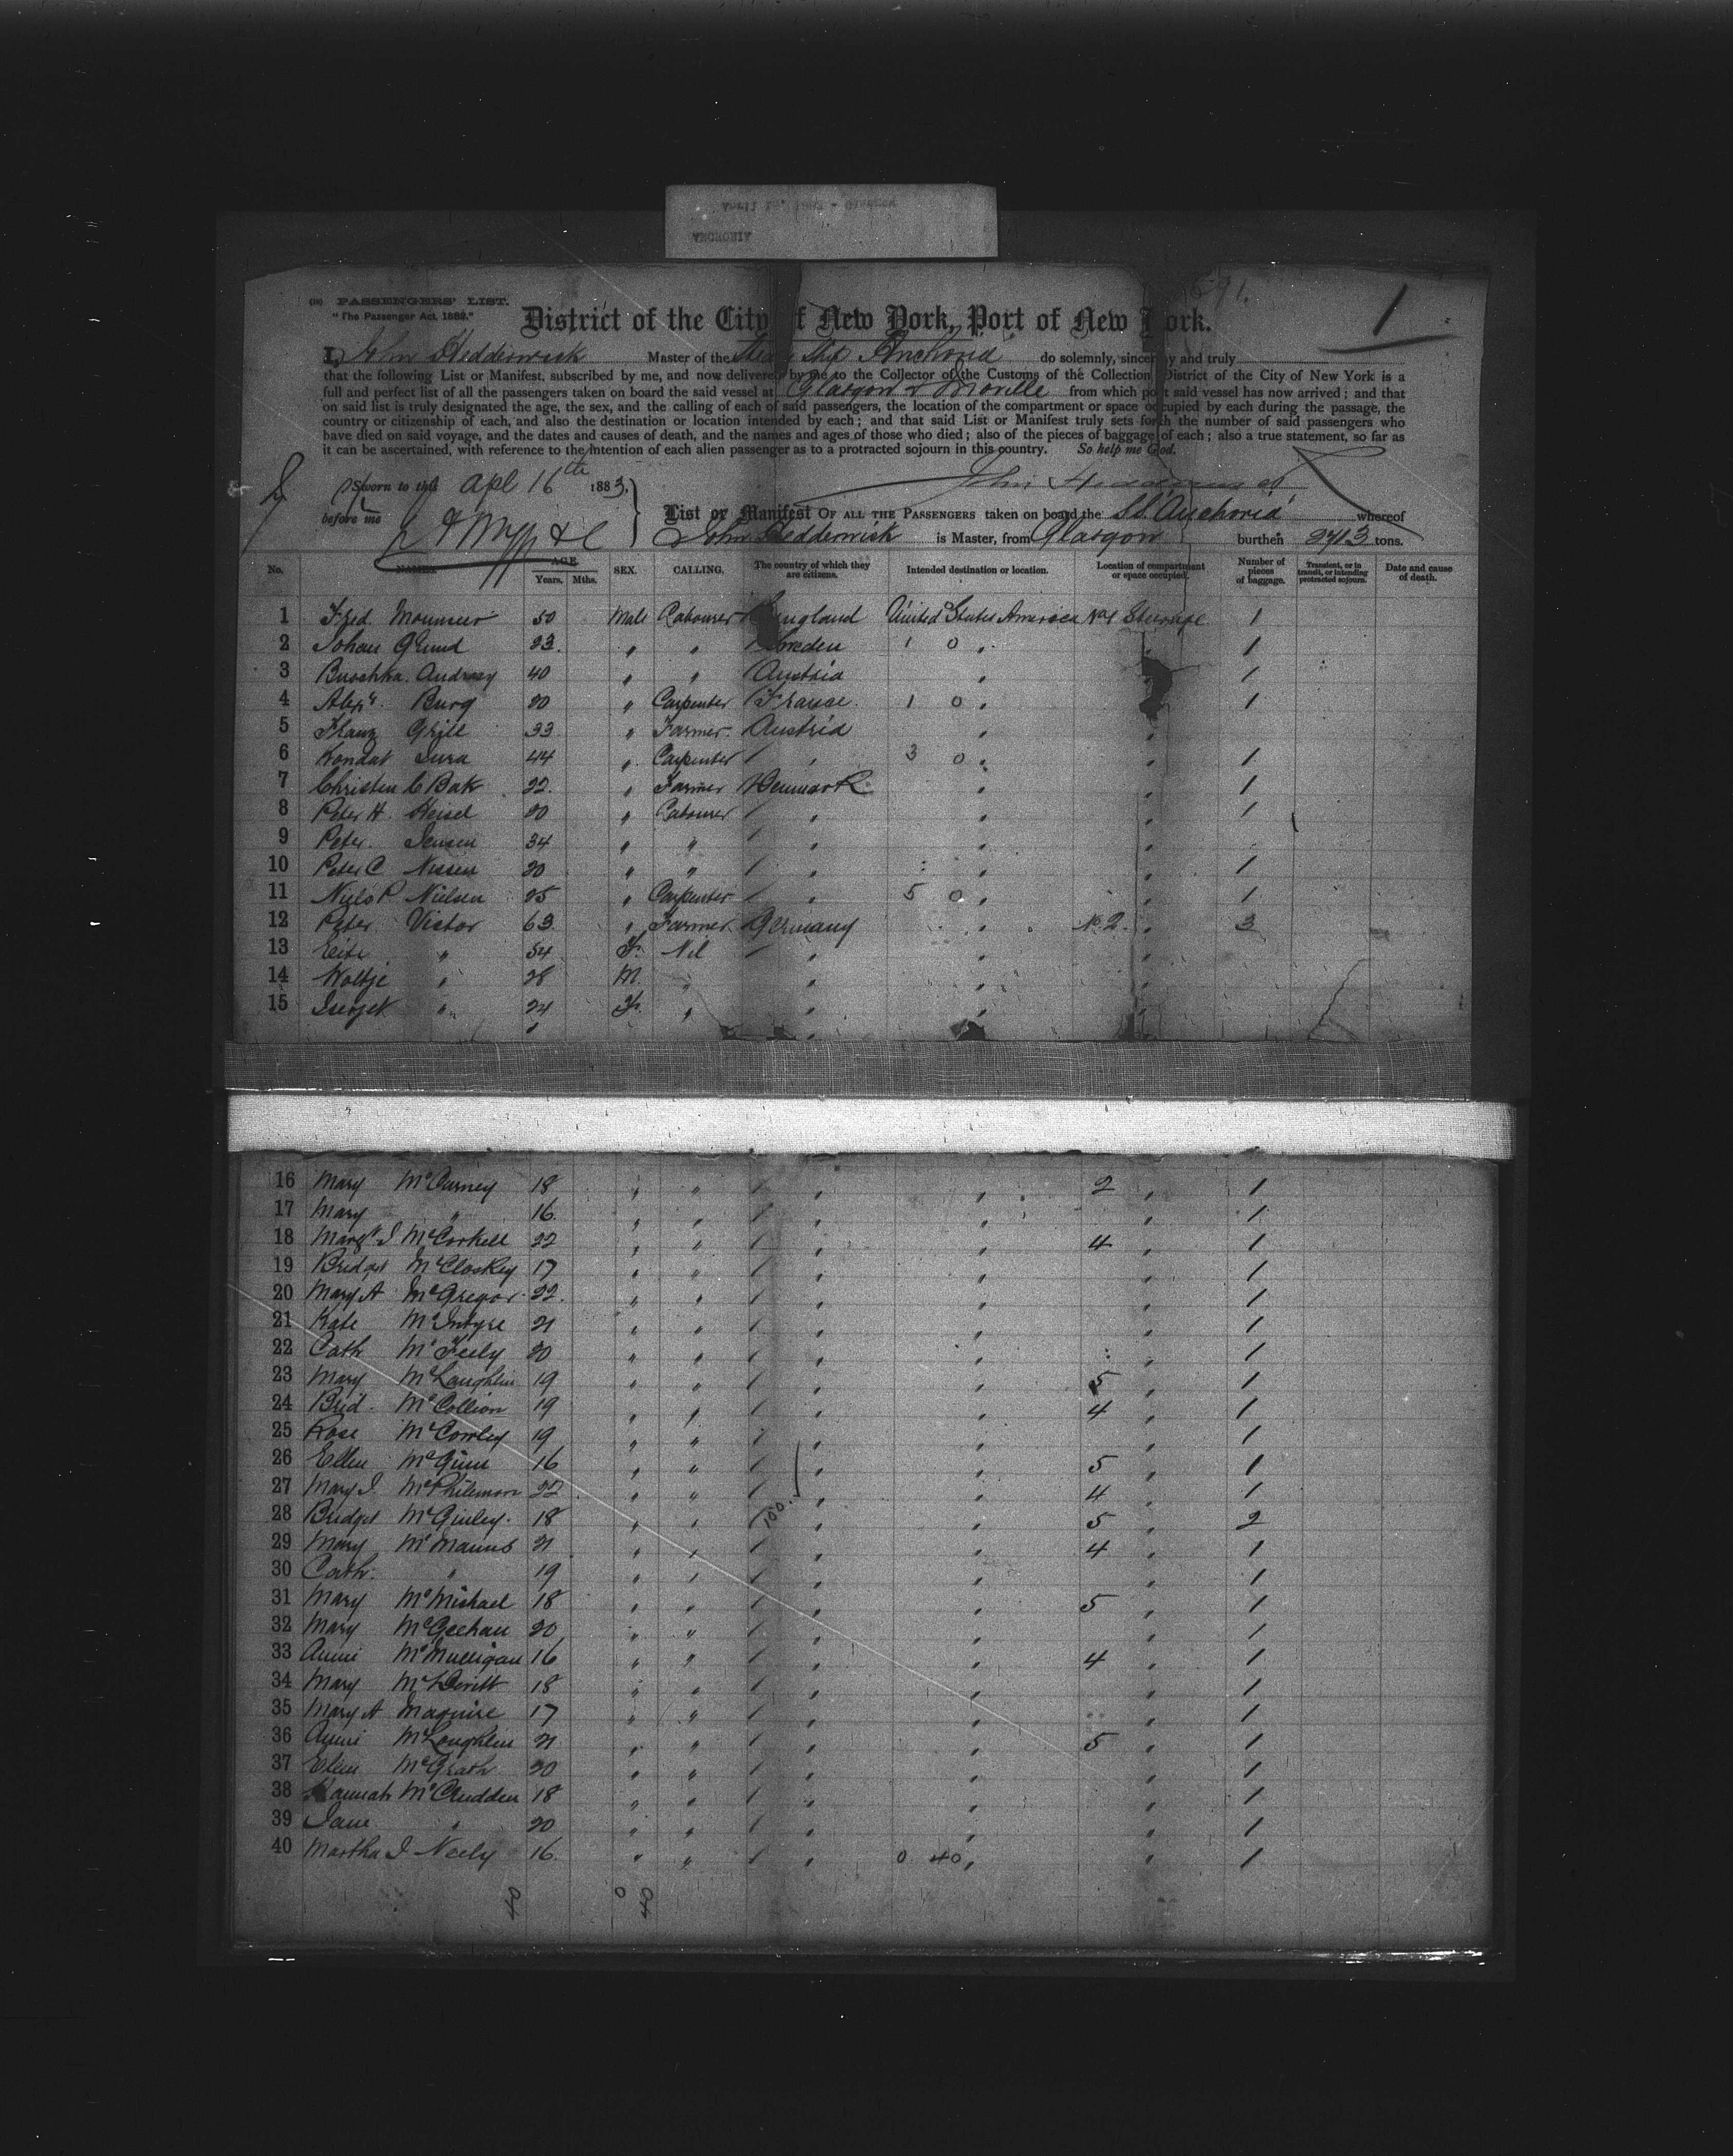 (18) PASSENGERS' LIST.
"The Passenger Act, 1882."
691.
1
District of the City of New York, Port of New York.
I, John Hedderwick Master of the Steam Ship Anchoria do solemnly, sincerely and truly
that the following List or Manifest, subscribed by me, and now delivered by me to the Collector of the Customs of the Collection District of the City of New York is a
full and perfect list of all the passengers taken on board the said vessel at Glasgow & Moville from which port said vessel has now arrived; and that
on said list is truly designated the age, the sex, and the calling of each of said passengers, the location of the compartment or space occupied by each during the passage, the
country or citizenship of each, and also the destination or location intended by each; and that said List or Manifest truly sets forth the number of said passengers who
have died on said voyage, and the dates and causes of death, and the names and ages of those who died; also of the pieces of baggage of each; also a true statement, so far as
it can be ascertained, with reference to the intention of each alien passenger as to a protracted sojourn in this country. So help me God.
Sworn to this Apl 16th 1883. John Hedderwick
before me
List or Manifest OF ALL THE PASSENGERS taken on board the S.S. Anchoria whereof
John Hedderwick is Master, from Glasgow burthen 2713 tons.
No. NAMES. AGE Years. Mths. SEX. CALLING. The country of which they are citizens. Intended destination or location. Location of compartment or space occupied. Number of pieces of baggage. Transient, or in transit, or intending protracted sojourn. Date and cause of death.
1 Fred. Mounsier 50 Male Labourer England United States America No 1 Steerage 1
2 Johan Grund 23. " " Sweden 1 0 " " 1
3 Buschka Andrasy 40 " " Austria " 1
4 Alexr. Burg 20 " Carpenter France 1 0 " 1
5 Franz Grill 33 " Farmer Austria " "
6 Kondat Jura 44 " Carpenter " 3 0 " " 1
7 Christen C Bak 22. " Farmer Denmark " " 1
8 Peter H. Heisel 20 " Labourer " " " 1
9 Peter. Jensen 34 " " " " "
10 Peter C Nissen 20 " " " " " 1
11 Niels P Nielsen 25 " Carpenter " 5 0 " " 1
12 Peter Victor 63 " Farmer Germany " No 2. " 3
13 " 54 F. Nil " " "
14 Woltje " 28 M " " " "
15 " 24 F. " " " "
16 Mary McCurney 18 " " " " 2 " 1
17 Mary " 16. " " " " " 1
18 Margt J McCorkell 22 " " " " 4 " 1
19 Bridget McCloskey 17 " " " " " 1
20 Mary A McGregor 22. " " " " " 1
21 Kate McIntyre 21 " " " " " 1
22 Cath McFeely 20 " " " " " 1
23 Mary McLaughlin 19 " " " " 5 " 1
24 Brid. McCollion 19 " " " " 4 " 1
25 Rose McCowley 19 " " " " " 1
26 Ellen McGinn 16 " " " " 5 " 1
27 Mary J. McPhilemon 22 " " " " 4 " 1
28 Bridget McGinley. 18 " " 100. " " 5 " 2
29 Mary McManus 21 " " " " 4 " 1
30 Cath. " 19 " " " " " 1
31 Mary McMichael 18 " " " " 5 " 1
32 Mary McGeehan 20 " " " " " 1
33 Annie McMulligan 16 " " " " 4 " 1
34 Mary McDevitt 18 " " " " " 1
35 Mary A Maguire 17 " " " " " 1
36 Annie McLoughlin 21 " " " " 5 " 1
37 Ellen McGrath 20 " " " " " 1
38 Hannah McCrudden 18 " " " " " 1
39 Jane " 20 " " " " " 1
40 Martha J Neely 16. " " " 0 40 " " 1
40 0 40